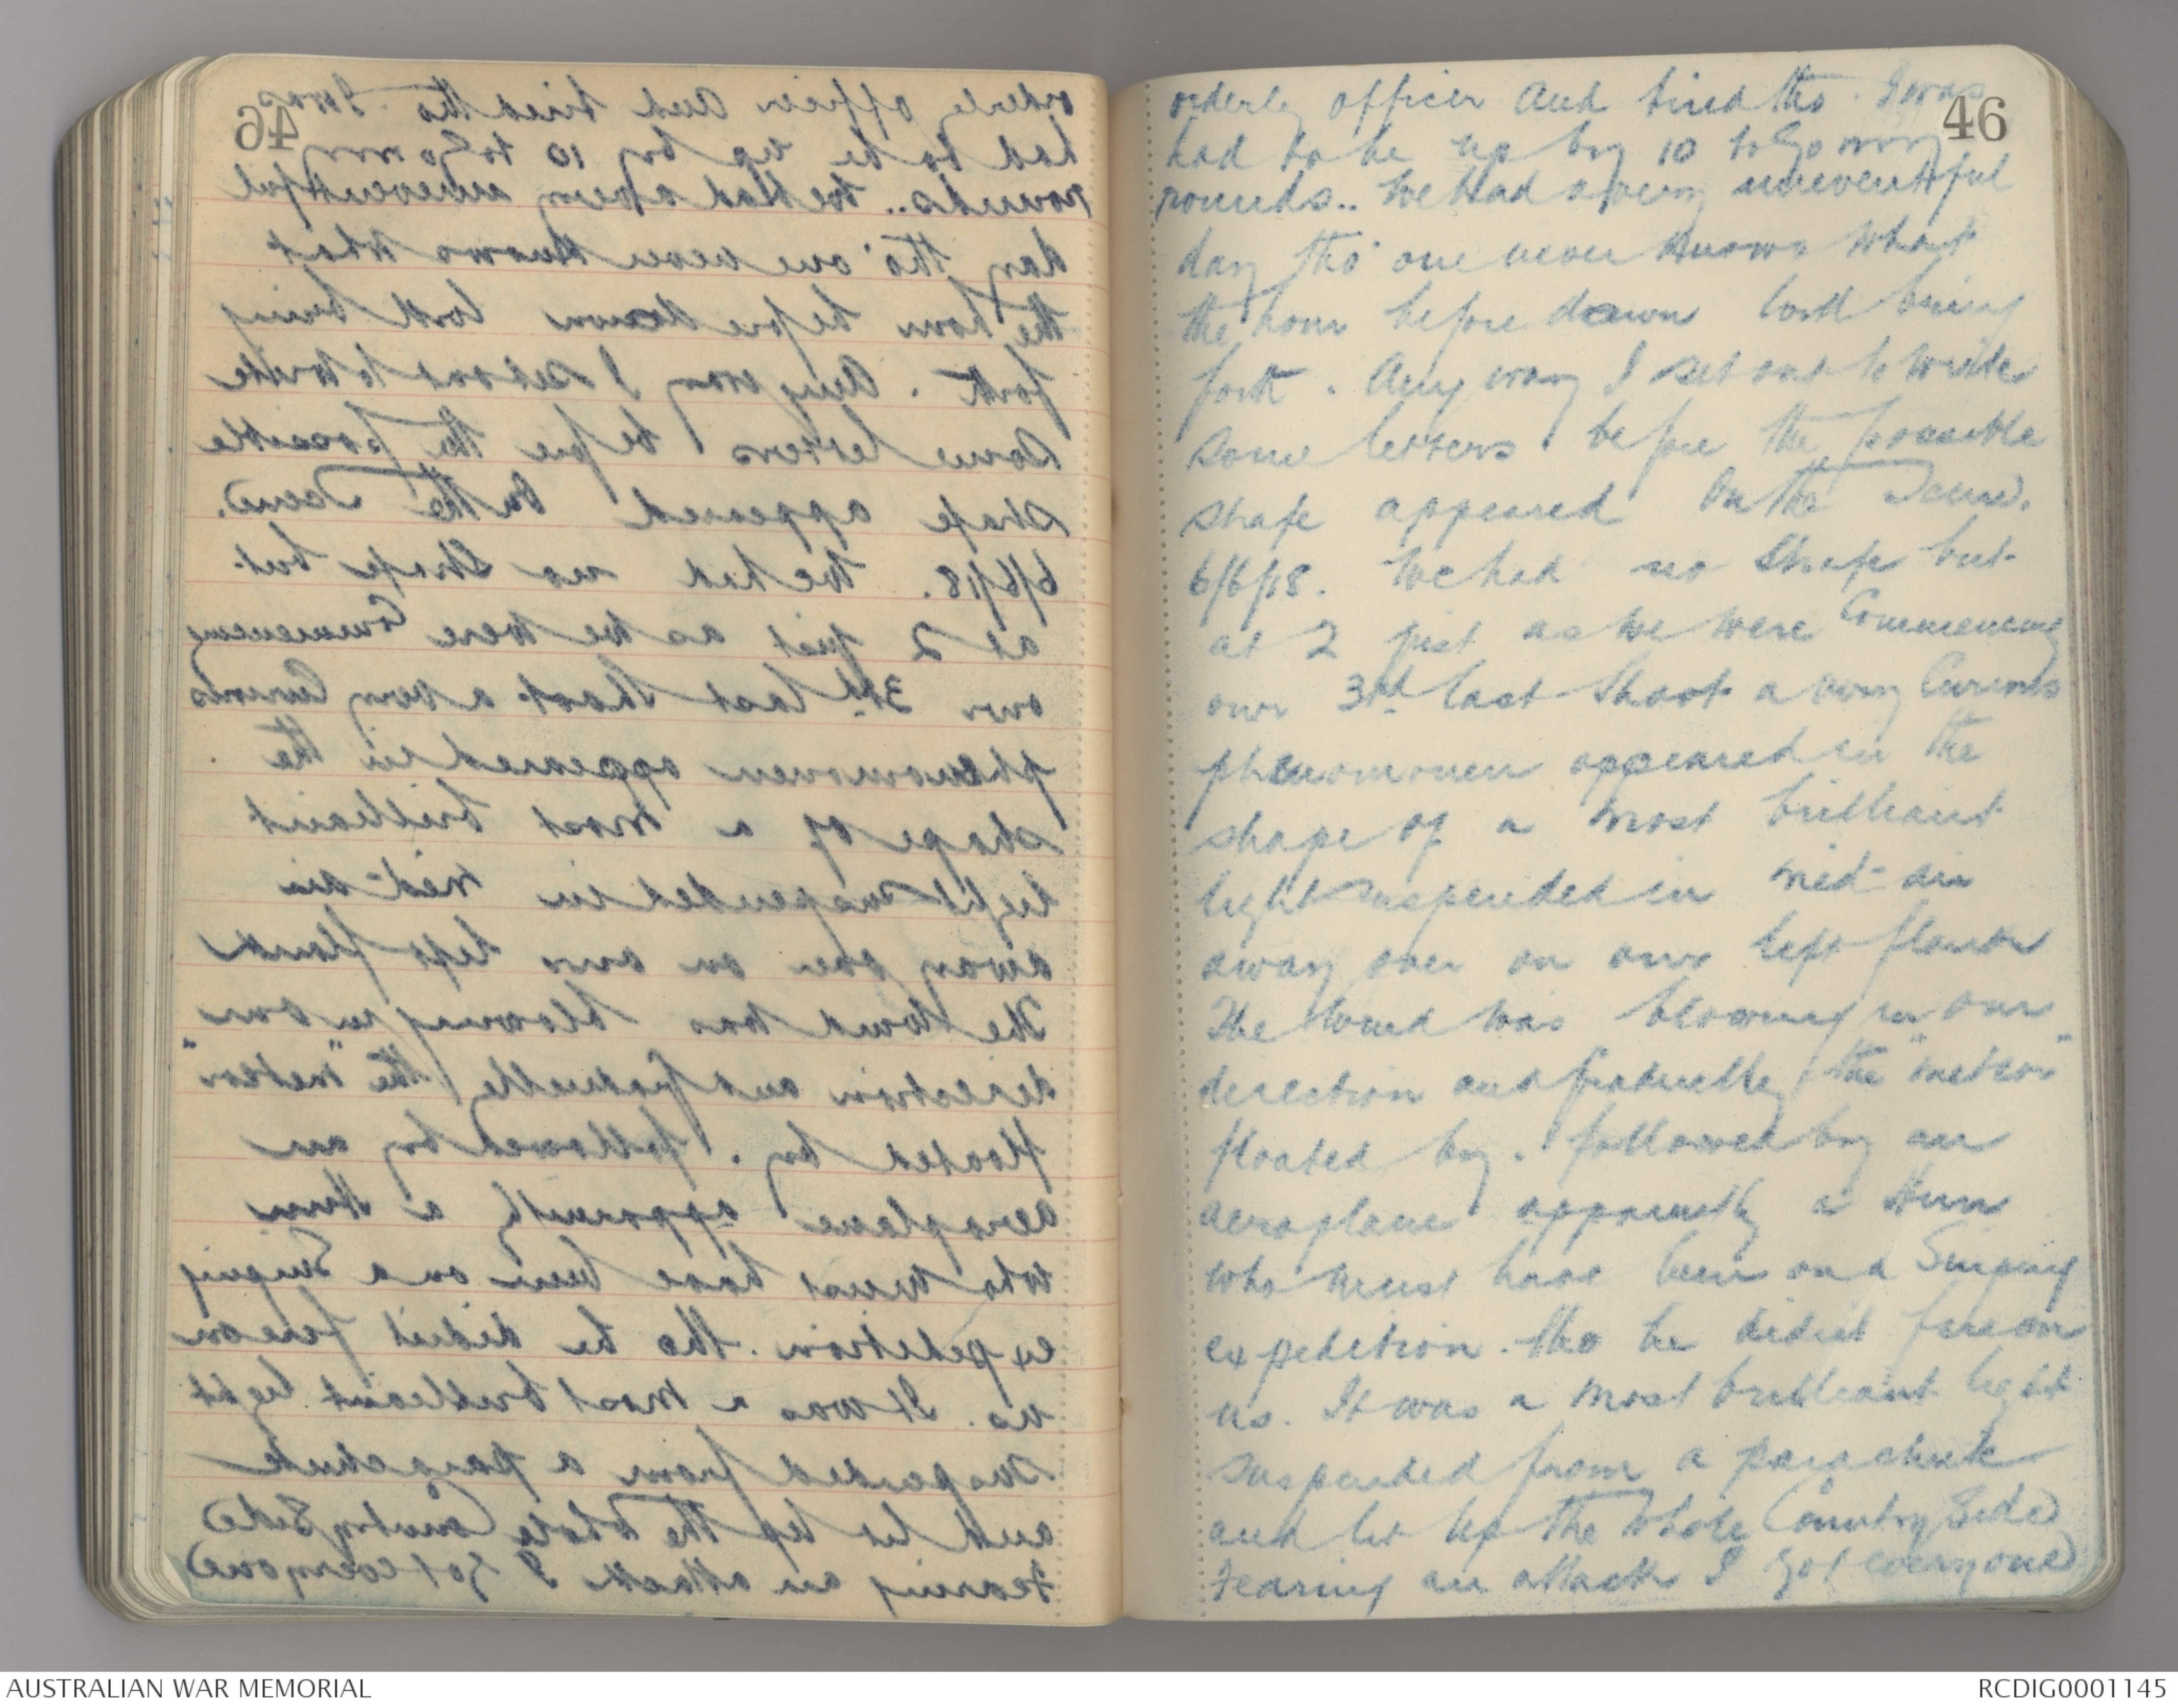 46
orderly officer and tired tho. I was
had to be up by 10 to go my
rounds.. We had a very uneventful
day tho' one never knows what
the hour before dawn will bring
forth. Anyway I set out to write
some letters before the possible
strafe appeared on the scene.
6/6/18. We had no strafe but
at 2 just as we were commencing
our 3rd last shoot a very curious
phenomonen appeared in the
shape of a most brilliant
light suspended in mid-air
away over on our left flank
The wind was blowing in our
direction and gradually the "meteor"
floated by. followed by an
aeroplane apparently a Hun
who must have been on a sniping
expedition. tho he didn't fire on
us. It was a most brilliant light
suspended from a parachute
and lit up the whole country side
Fearing an attack I got everyone
AUSTRALIAN WAR MEMORIAL
RCDIG0001145